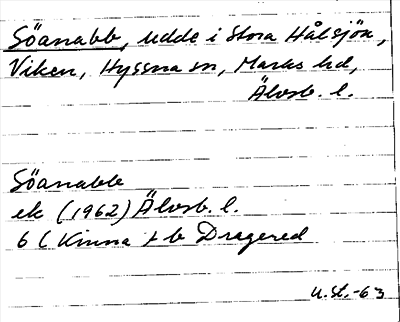 Söanabb, udde i Stora Hålsjön,
Viken, Hyssna sn, Marks hd,
Älvsb. l.
Söanabb
ek (1962) Älvsb. l.
6 ( Kinna t b Dragered
U.St.-63